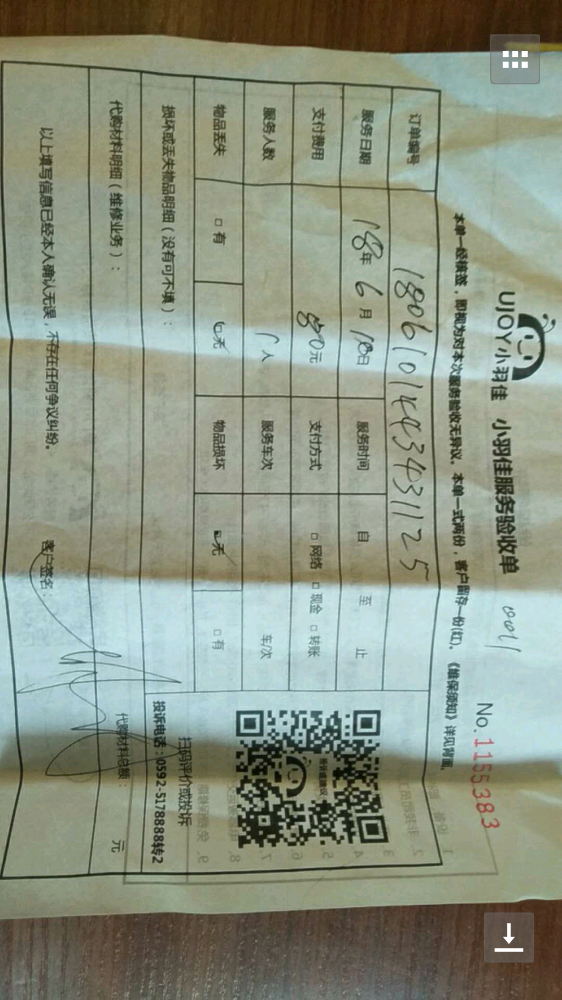 UJOY小羽佳 小羽佳服务验收单
No.1155383
本单一经接签，即视为对本次服务验收无异议。本单一式两份，客户留存一份(红)。《维保须知》详见背面。
订单编号
服务日期 18年 6月 18日 服务时间 自 至 止
支付费用 元 支付方式 □网络 □现金 □转账
服务人数 1人 服务车次 车/次
物品丢失 □有 □无 物品损坏 □无 □有
损坏或丢失物品明细（没有可不填）：
扫码评价或投诉
投诉电话：0592-5178888转2
代购材料明细（维修业务）： 代购材料总额： 元
以上填写信息已经本人确认无误，不存在任何争议纠纷。 客户签名：